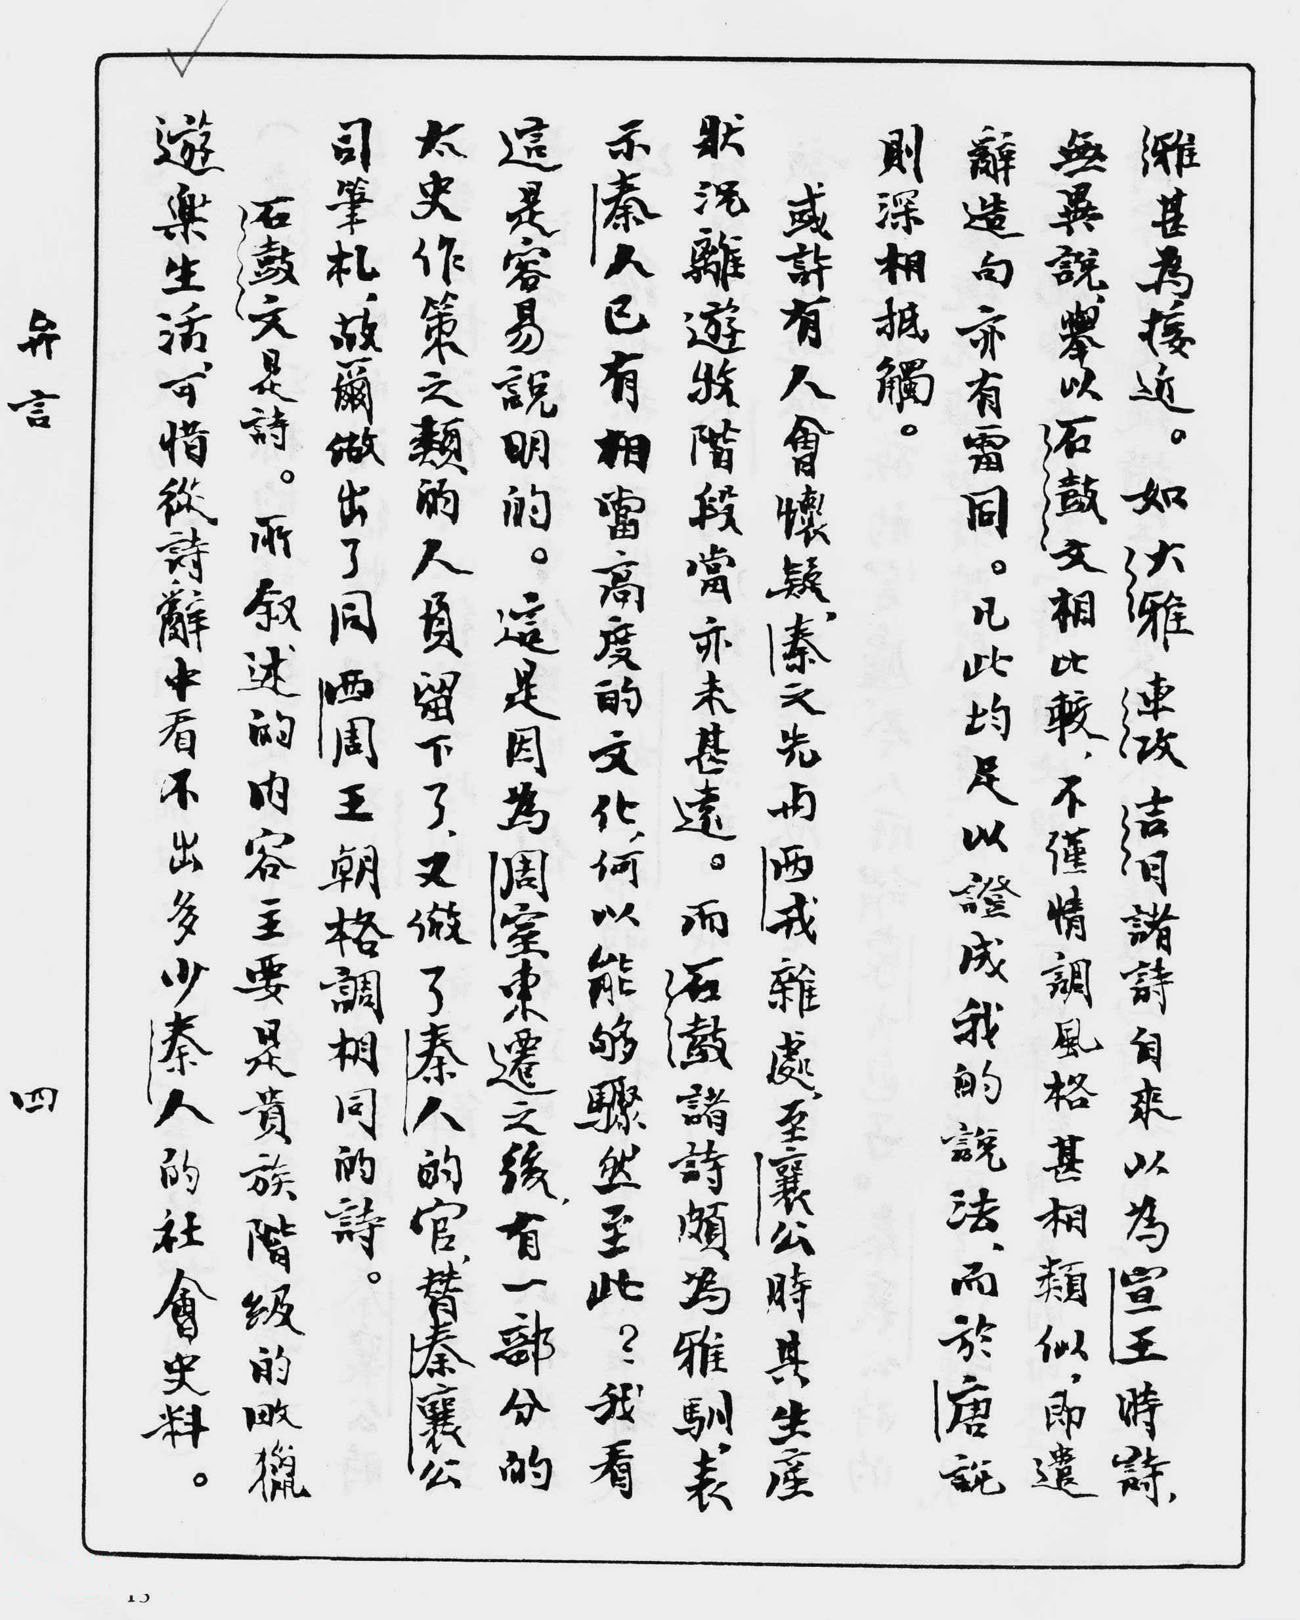 雅甚為接近。如大雅車攻吉日諸詩自來以為宣王時詩，
無異說，舉以石鼓文相比較，不僅情調風格甚相類似，即遣
辭造句亦有雷同。凡此均足以證成我的說法，而於唐說
則深相抵觸。
或許有人會懷疑，秦之先世與西戎雜處，至襄公時其生產
狀況離遊牧階段當亦未甚遠。而石鼓諸詩頗為雅馴，表
示秦人已有相當高度的文化，何以能夠驟然至此？我看
這是容易說明的。這是因為周室東遷之後，有一部分的
太史作策之類的人員留下了，又做了秦人的官，替秦襄公
司筆札，故爾做出了同西周王朝格調相同的詩。
石鼓文是詩。所叙述的內容主要是貴族階級的畋獵
遊樂生活，可惜從詩辭中看不出多少秦人的社會史料。
弁言
四